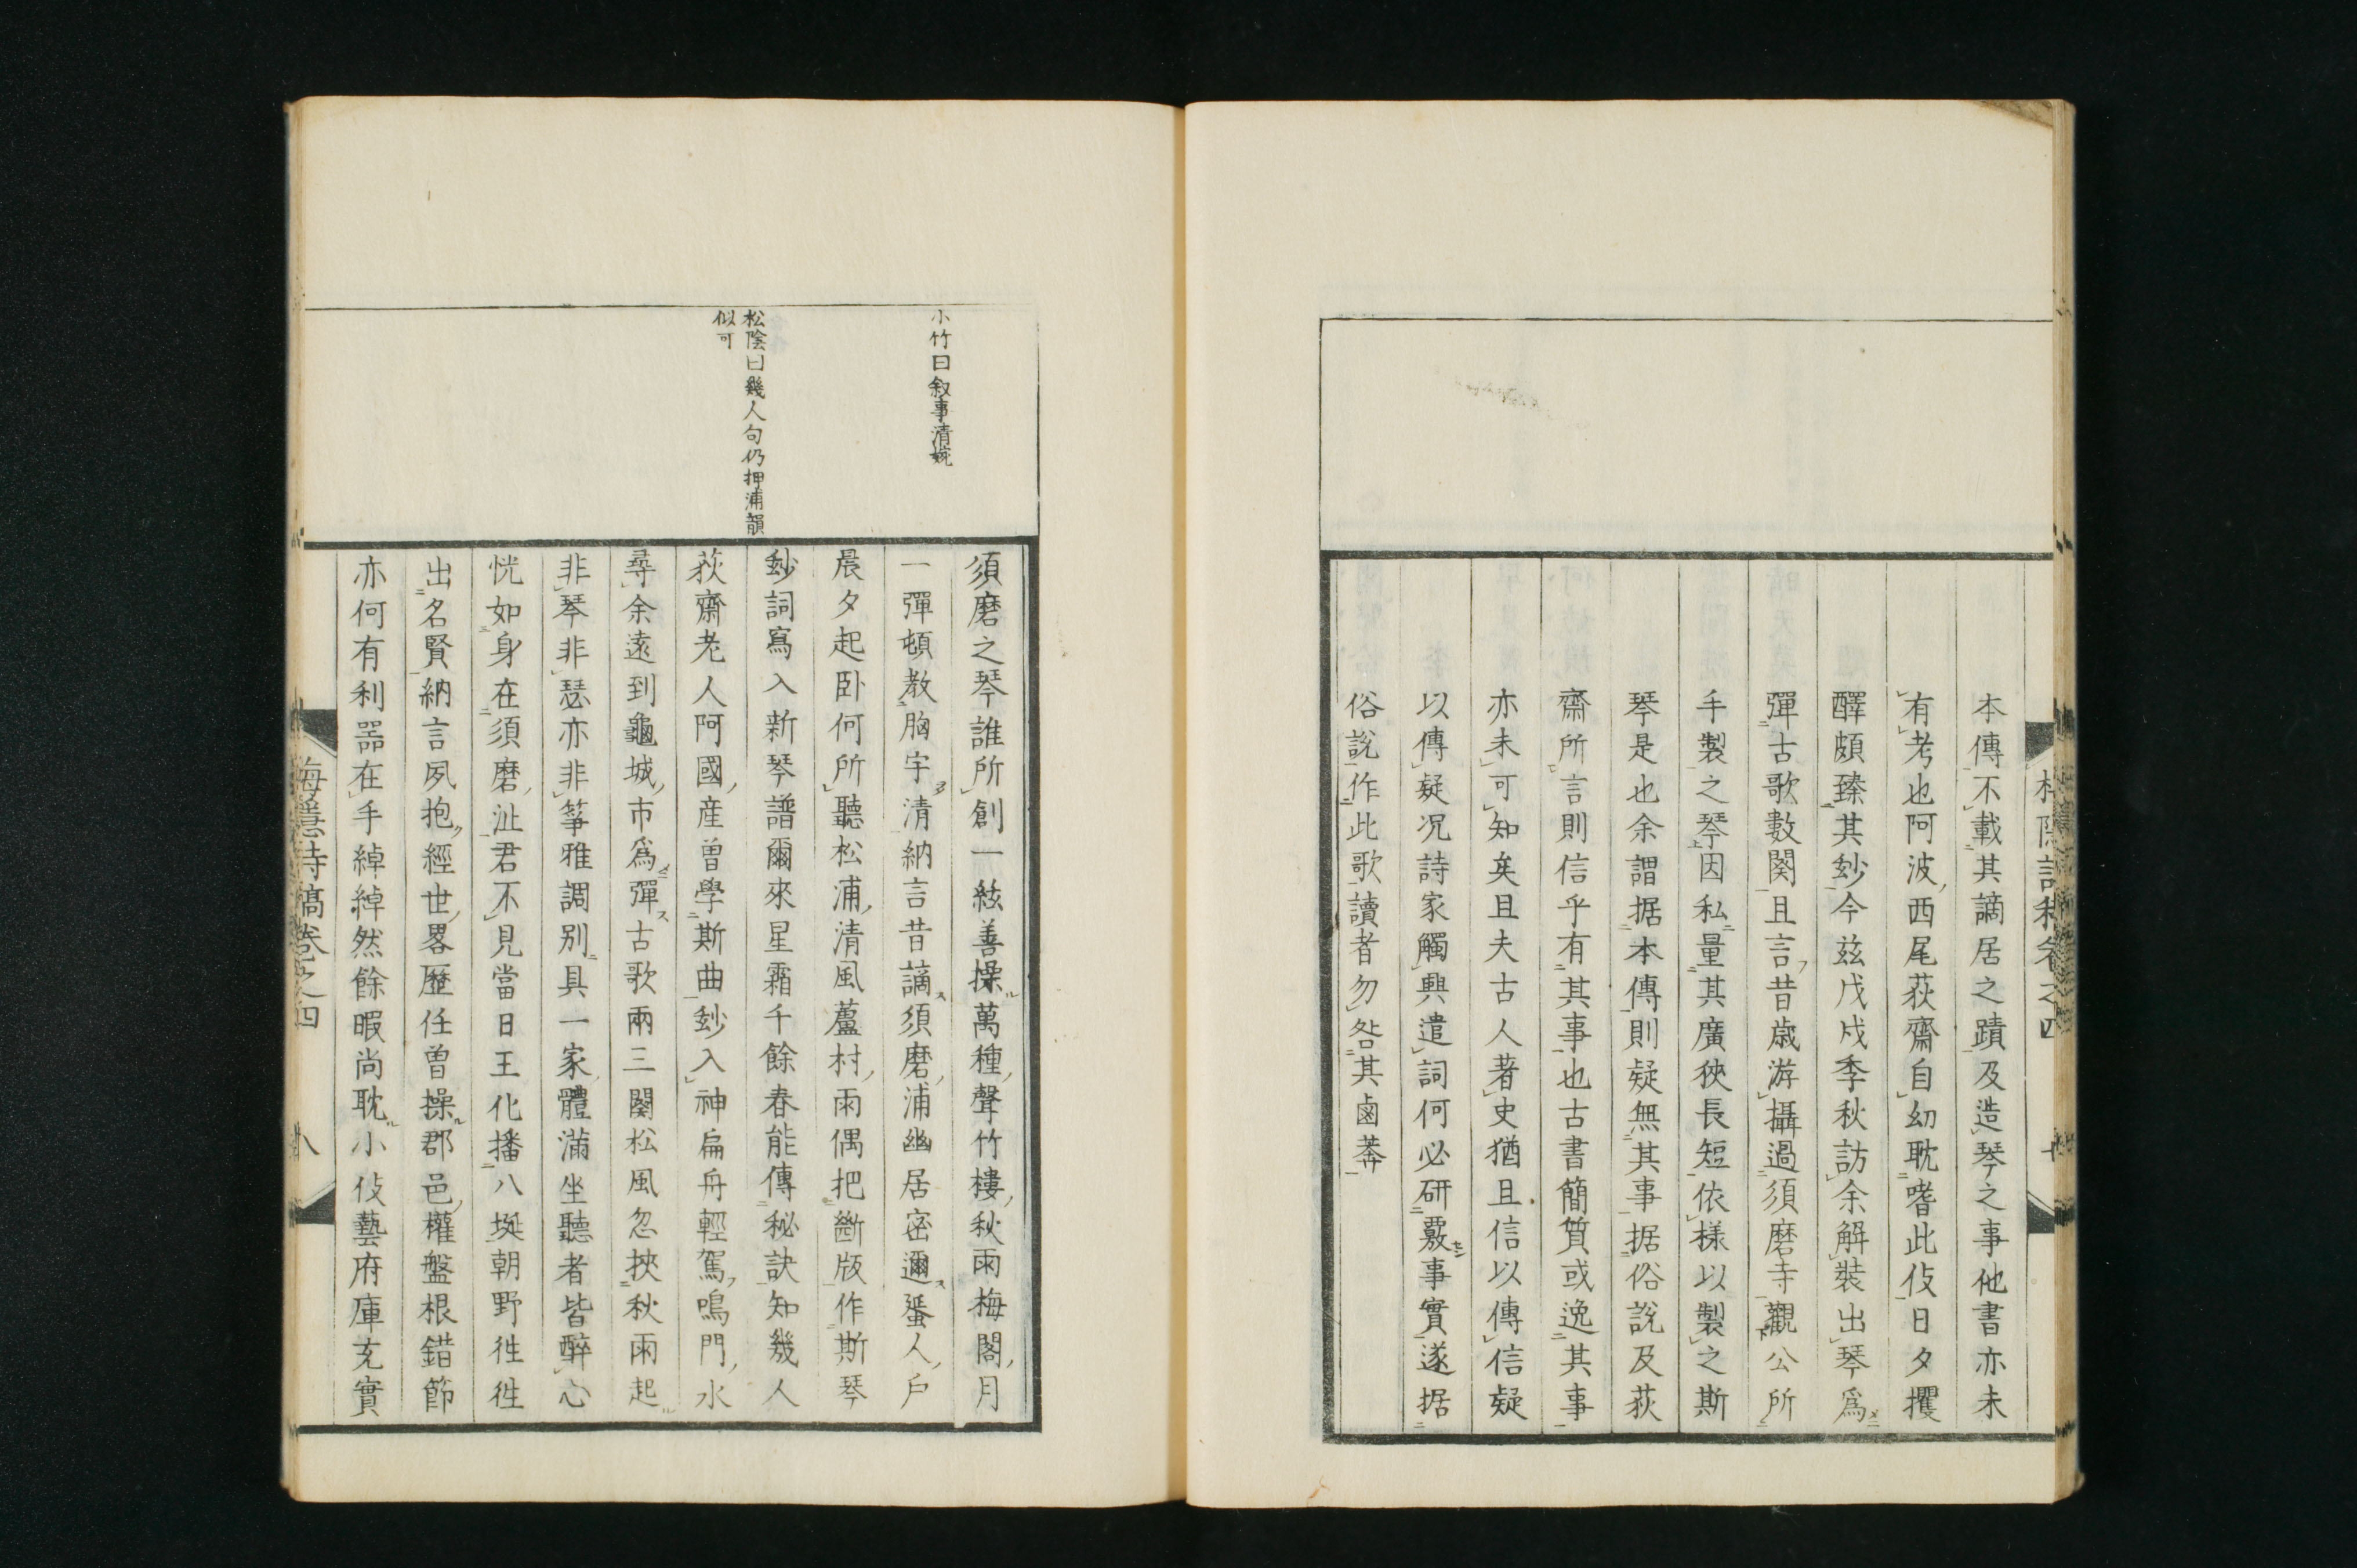 本傳不載其謫居之蹟及造琴之事他書亦未
有考也阿波西尾荻齋自幼耽嗜此伎日夕攫
醳頗臻其玅今兹戊戌季秋訪余解裝出琴爲
彈古歌數闋且言昔歳游攝過須磨寺觀公所
手製之琴因私量其廣狹長短依樣以製之斯
琴是也余謂据本傳則疑無其事据俗說及荻
齋所言則信乎有其事也古書簡質或逸其事
亦未可知矣且夫古人著史猶且信以傳信疑
以傳疑况詩家觸興遣詞何必研覈事實遂据
俗說作此歌讀者勿咎其鹵莽
小竹曰敘事清婉
松陰曰幾人句仍押浦韻
似可
須磨之琴誰所創一絃善操萬種聲竹樓秋雨梅閣月
一彈頓教胸宇清納言昔謫須磨浦幽居密邇蜑人戶
晨夕起卧何所聽松浦清風蘆村雨偶把斷版作斯琴
玅詞寫入新琴譜爾來星霜千餘春能傳秘訣知幾人
荻齋老人阿國產曾學斯曲玅入神扁舟輕駕鳴門水
尋余遠到龜城市爲彈古歌兩三闋松風忽挾秋雨起
非琴非瑟亦非箏雅調別具一家體滿坐聽者皆醉心
恍如身在須磨沚君不見當日王化播八埏朝野徃徃
出名賢納言夙抱經世畧歷任曾操郡邑權盤根錯節
亦何有利器在手綽綽然餘暇尚耽小伎藝府庫充實
梅隱詩稿卷之四
八